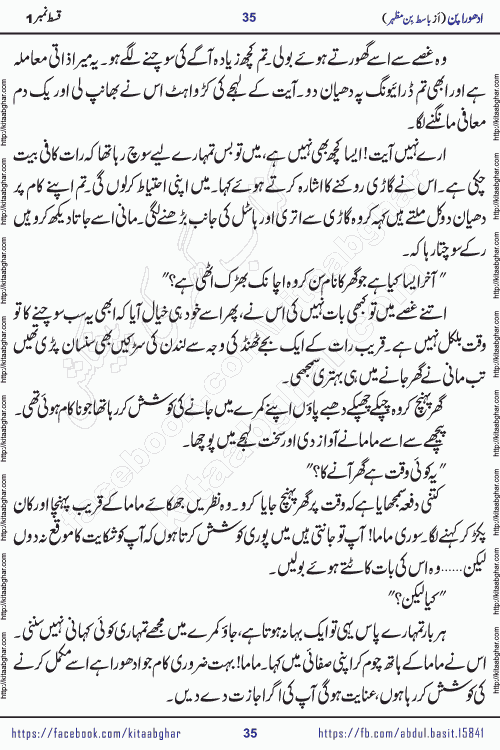 ادھوراپن (از باسط بن مظہر) 35 قسط نمبر 1
وہ غصے سے اسے گھورتے ہوئے بولی۔ تم کچھ زیادہ آگے کی سوچنے لگے ہو۔ یہ میرا ذاتی معاملہ
ہے اور ابھی تم ڈرائیونگ پہ دھیان دو۔ آیت کے لہجے کی کڑواہٹ اس نے بھانپ لی اور یک دم
معافی مانگنے لگا۔
ارے نہیں آیت! ایسا کچھ بھی نہیں ہے، میں تو بس تمہارے لیے سوچ رہا تھا کہ رات کافی بیت
چکی ہے۔ اس نے گاڑی روکنے کا اشارہ کرتے ہوئے کہا۔ میں اپنی احتیاط کر لوں گی۔ تم اپنے کام پر
دھیان دو کل ملتے ہیں کہہ کر وہ گاڑی سے اتری اور ہاسٹل کی جانب بڑھنے لگی۔ مانی اسے جاتا دیکھ کر وہیں
رکے سوچتا رہا کہ۔
"آخر ایسا کیا ہے جو گھر کا نام سن کر وہ اچانک بھڑک اٹھی ہے؟"
اتنے غصے میں تو کبھی بات نہیں کی اس نے، پھر اسے خود ہی خیال آیا کہ ابھی یہ سب سوچنے کا تو
وقت بلکل نہیں ہے۔ قریب رات کے ایک بجے ٹھنڈ کی وجہ سے لندن کی سڑکیں بھی سنسان پڑی تھیں
تب مانی نے گھر جانے میں ہی بہتری سمجھی۔
گھر پہنچ کر وہ چپکے چپکے دھیمے پاؤں اپنے کمرے میں جانے کی کوشش کر رہا تھا جو ناکام ہوئی تھی۔
پیچھے سے اسے ماما نے آواز دی اور سخت لہجے میں پوچھا۔
"یہ کوئی وقت ہے گھر آنے کا؟"
کتنی دفعہ سمجھایا ہے کہ وقت پر گھر پہنچ جایا کرو۔ وہ نظریں جھکائے ماما کے قریب پہنچا اور کان
پکڑ کر کہنے لگا۔ سوری ماما! آپ تو جانتی ہیں میں پوری کوشش کرتا ہوں کہ آپ کو شکایت کا موقع نہ دوں
لیکن...... وہ اس کی بات کاٹتے ہوئے بولیں۔
"کیا لیکن؟"
ہر بار تمہارے پاس یہی تو ایک بہانہ ہوتا ہے، جاؤ کمرے میں مجھے تمہاری کوئی کہانی نہیں سننی۔
اس نے ماما کے ہاتھ چوم کر اپنی صفائی میں کہا۔ ماما! بہت ضروری کام جو ادھورا ہے اسے مکمل کرنے
کی کوشش کر رہا ہوں، عنایت ہوگی آپ کی اگر اجازت دے دیں۔
https://facebook.com/kitaabghar 35 https://fb.com/abdul.basit.15841
http://kitaabghar.com
http://kitaabghar.com
http://kitaabghar.com
http://kitaabghar.com
http://kitaabghar.com
http://kitaabghar.com
http://kitaabghar.com
http://kitaabghar.com